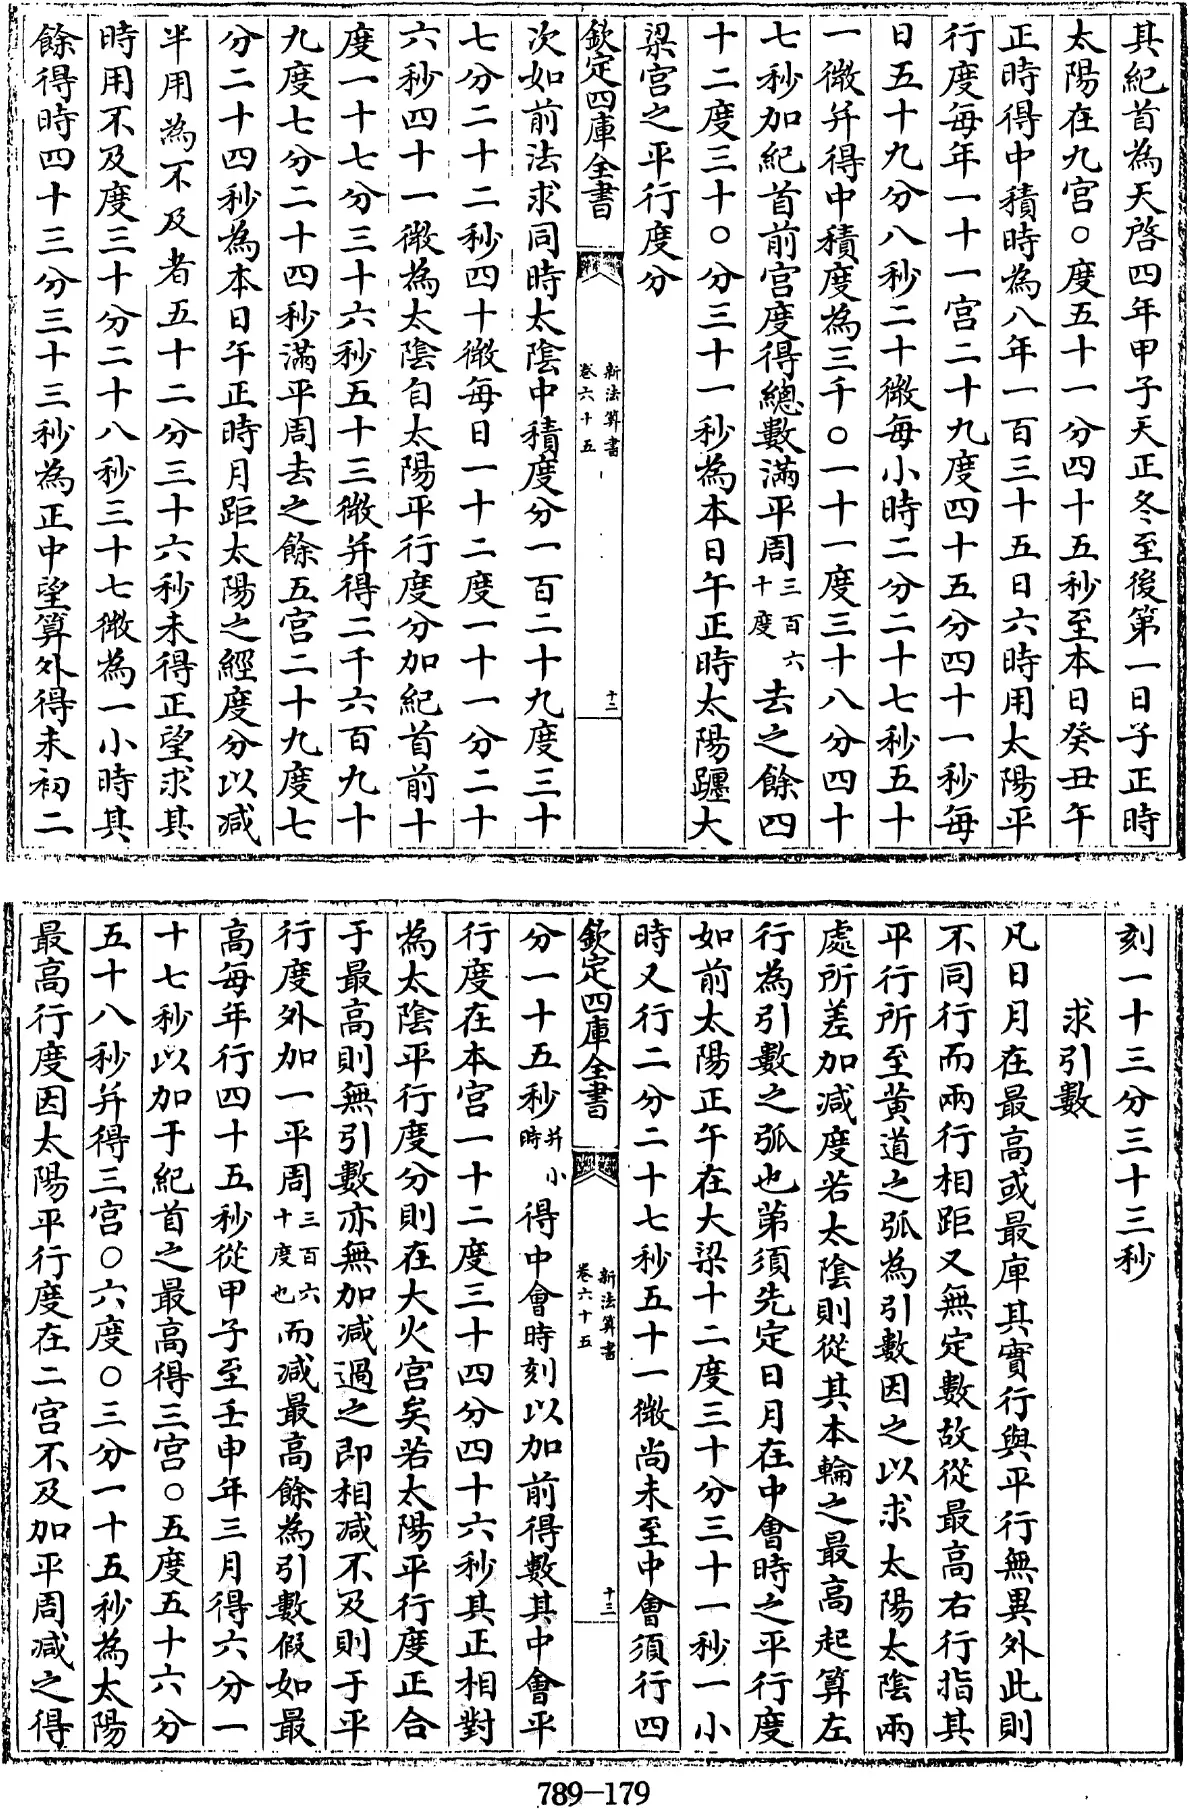 其紀首為天啓四年甲子天正冬至後第一日子正時
太陽在九宫〇度五十一分四十五秒至本日癸丑午
正時得中積時為八年一百三十五日六時用太陽平
行度每年一十一宫二十九度四十五分四十一秒每
日五十九分八秒二十微每小時二分二十七秒五十
一微并得中積度為三千〇一十一度三十八分四十
七秒加紀首前宫度得總數滿平周三百六十度去之餘四
十二度三十〇分三十一秒為本日午正時太陽躔大
梁宫之平行度分
欽定四庫全書
新法算書
卷六十五
十二
次如前法求同時太陰中積度分一百二十九度三十
七分二十二秒四十微每日一十二度一十一分二十
六秒四十一微為太陰自太陽平行度分加紀首前十
度一十七分三十六秒五十三微并得二千六百九十
九度七分二十四秒滿平周去之餘五宫二十九度七
分二十四秒為本日午正時月距太陽之經度分以减
半用為不及者五十二分三十六秒未得正望求其
時用不及度三十分二十八秒三十七微為一小時其
餘得時四十三分三十三秒為正中望算外得未初二
刻一十三分三十三秒
求引數
凡日月在最高或最庳其實行與平行無異外此則
不同行而兩行相距又無定數故從最高右行指其
平行所至黄道之弧為引數因之以求太陽太陰兩
處所差加减度若太陰則從其本輪之最高起算左
行為引數之弧也第須先定日月在中會時之平行度
如前太陽正午在大梁十二度三十分三十一秒一小
時又行二分二十七秒五十一微尚未至中會須行四
欽定四庫全書
新法算書
卷六十五
十三
分一十五秒并小時得中會時刻以加前得數其中會平
行度在本宫一十二度三十四分四十六秒其正相對
為太陰平行度分則在大火宫矣若太陽平行度正合
于最高則無引數亦無加减過之即相减不及則于平
行度外加一平周三百六十度也而减最高餘為引數假如最
高每年行四十五秒從甲子至壬申年三月得六分一
十七秒以加于紀首之最高得三宫〇五度五十六分
五十八秒并得三宫〇六度〇三分一十五秒為太陽
最高行度因太陽平行度在二宫不及加平周减之得
789-179